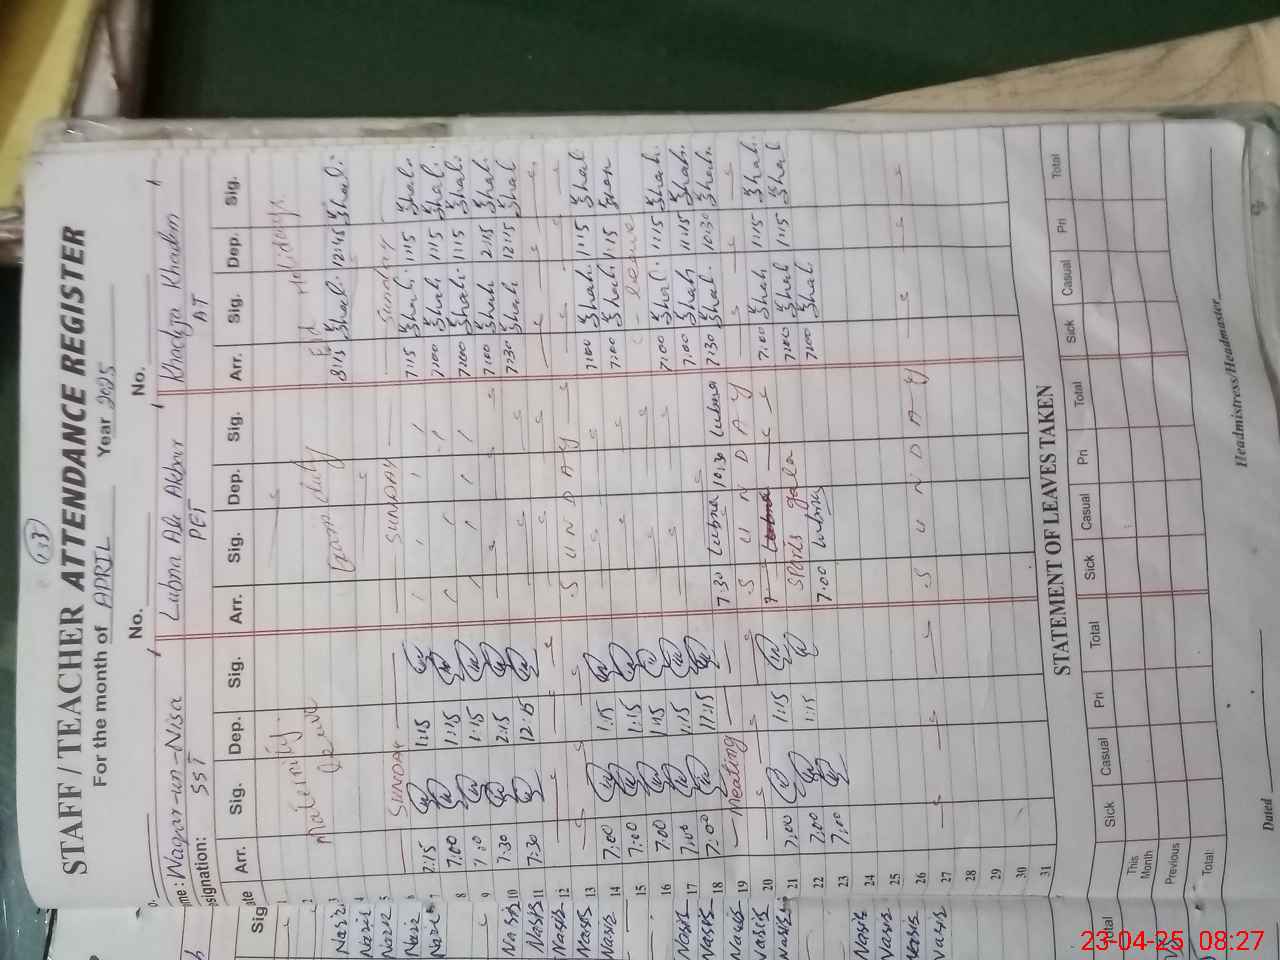 133
STAFF / TEACHER ATTENDANCE REGISTER
For the month of APRIL Year 2025
No. No.
me: Waqar-un-Nisa Lubna Ali Akbar Khadija Khadim
signation: SST PET AT
Sig
ate Arr. Sig. Dep. Sig. Arr. Sig. Dep. Sig. Arr. Sig. Dep. Sig.
1
2 Maternity Leave Exam duty Eid Holidays
Nazir 3 8:15 Shal. 12:45 Shal.
Nazir 4
Nazir 5 SUNDAY SUNDAY Sunday
Nazir 7 7:15 1:15 7:15 Shal. 1:15 Shal.
Nazir 8 7:00 1:15 7:00 Shal. 1:15 Shal.
9 7:00 1:15 7:00 Shal. 1:15 Shal.
Nasis 10 7:30 2:15 7:00 Shal. 2:15 Shal.
Nasis 11 7:30 12:15 7:30 Shal. 12:15 Shal
Nasis 12
Nasis 13 S U N D A Y
Nasis 14 7:00 1:15 7:00 Shal. 1:15 Shal
15 7:00 1:15 7:00 Shal. 1:15
16 7:00 1:15 leave
Nasis 17 7:00 1:15 7:00 Shal. 1:15 Shal.
Nasis 18 7:00 11:15 7:00 Shal. 11:15 Shal.
Nasis 19 Meating 7:30 Lubna 10:30 Lubna 7:30 Shal. 10:30 Shal.
Nasis 20 S U N D A Y
Nasis 21 7:00 1:15 7:00 Shal. 1:15 Shal.
22 7:00 1:15 Sports gala 7:00 Shal 1:15 Shal
23 7:00 7:00 Lubna 7:00 Shal.
Nasis 24
Nasis 25
Nasis 26
Nasis 27 S U N D A Y
28
29
30
31
STATEMENT OF LEAVES TAKEN
Total Sick Casual Pri Total Sick Casual Pri Total Sick Casual Pri Total
This Month
Previous
Total
Dated Headmistress/Headmaster
23-04-25 08:27